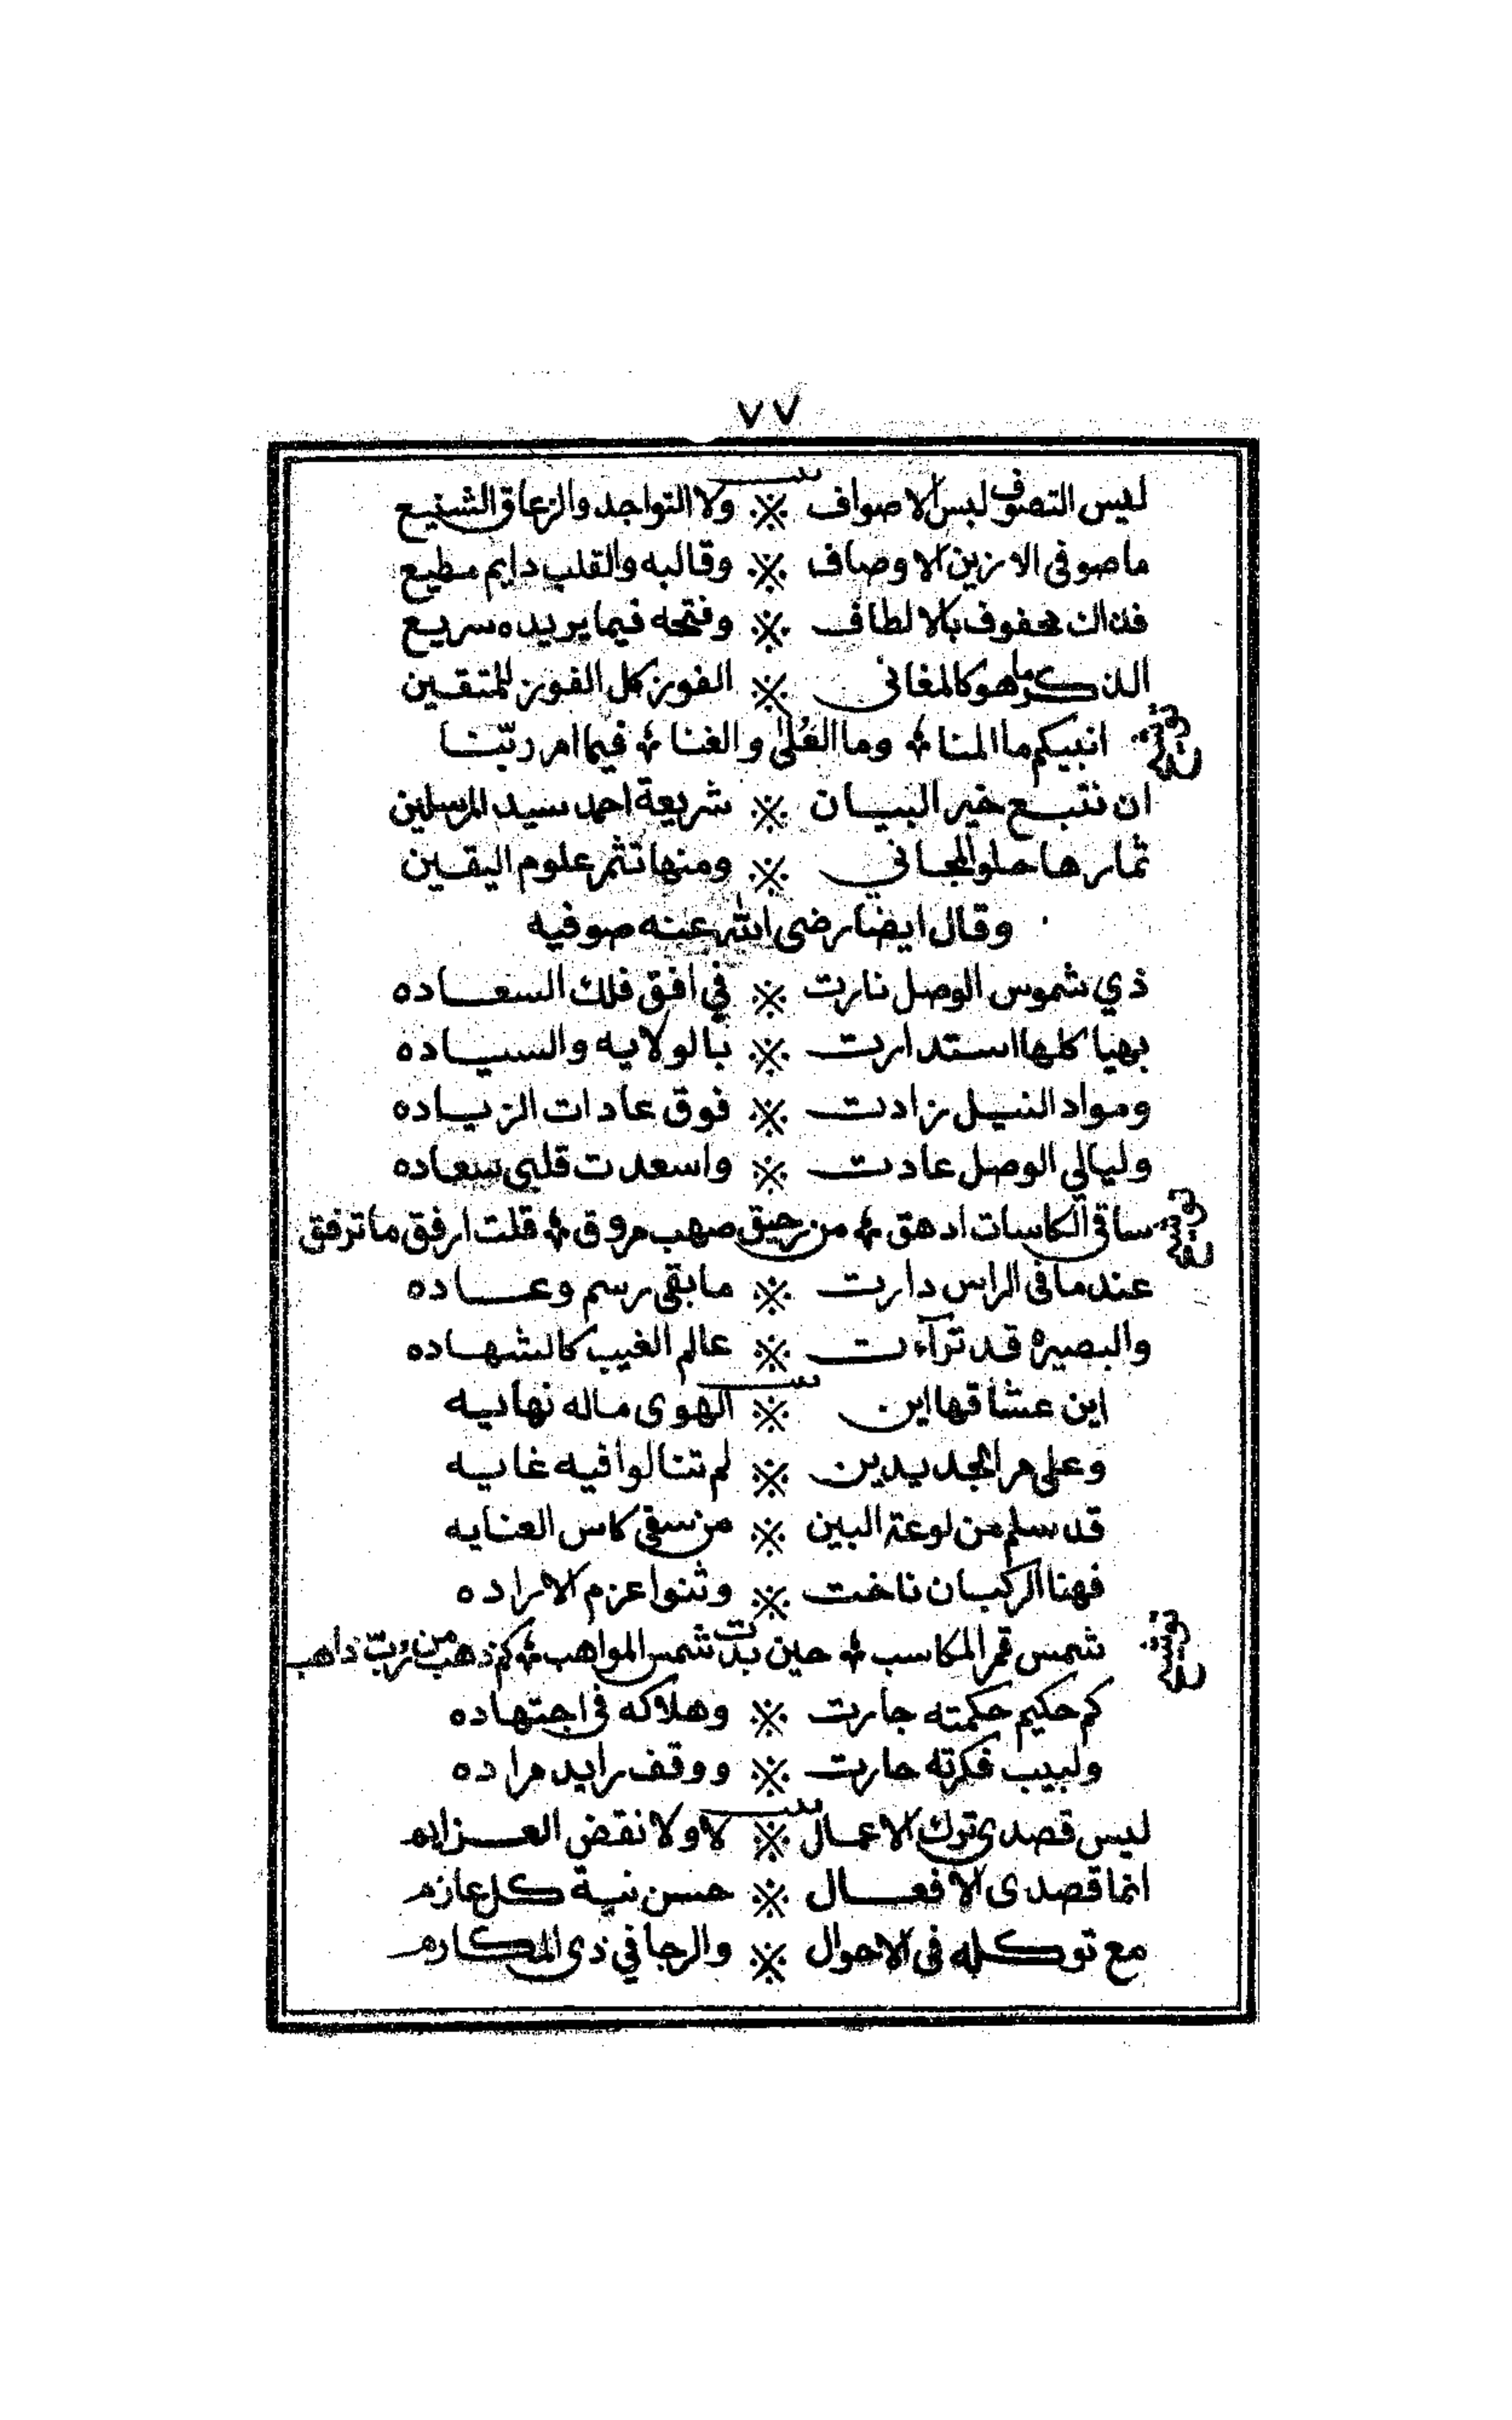 ٧٧
بيت
ليس التصوف لبس الاصواف ※ ولا التواجد والزعاق الشنيع
ماصوفي الا زين الاوصاف ※ وقالبه والقلب دايم مطيع
فذاك محفوف بالالطاف ※ وفتحه فيما يريده سريع
الذكر ما هو كالمغاني ※ الفوز كل الفوز للمتقين
توشيح انبيكم ما المنا ⁂ وما العُلى والغنا ⁂ فيما امر ربّنا
ان نتبع خير البيان ※ شريعة احمد سيد المرسلين
ثمارها حلو المجاني ※ ومنها تثمر علوم اليقين
وقال ايضا رضى الله عنه صوفيه
ذي شموس الوصل نارت ※ في افق فلك السعاده
بهيا كلها استدارت ※ بالولايه والسياده
ومواد النيل زادت ※ فوق عادات الزياده
وليالي الوصل عادت ※ واسعدت قلبي سعاده
توشيح ساقي الكاسات ادهق ⁂ من رحيق صهب مروق ⁂ قلت ارفق ما ترفق
عندما في الراس دارت ※ مابقى رسم وعاده
والبصيره قد ترآءت ※ عالم الغيب كالشهاده
بيت
اين عشاقها اين ※ الهوى ماله نهايه
وعلى مر الجديدين ※ لم تنالوا فيه غايه
قد سلم من لوعة البين ※ من سقي كاس العنايه
فهنا الركبان ناخت ※ وثنوا عزم الاراده
توشيح شمس قمر المكاسب ⁂ حين بدت شمس المواهب ⁂ كم ذهب من رُبّ ذاهب
كم حكيم حكمته جارت ※ وهلاكه في اجتهاده
ولبيب فكرته حارت ※ ووقف رايد مراده
بيت
ليس قصدي ترك الاعمال ※ لا ولا نقض العزايم
انما قصدى الافعال ※ حسن نية كل عازم
مع توكله في الاحوال ※ والرجا في ذى المكارم